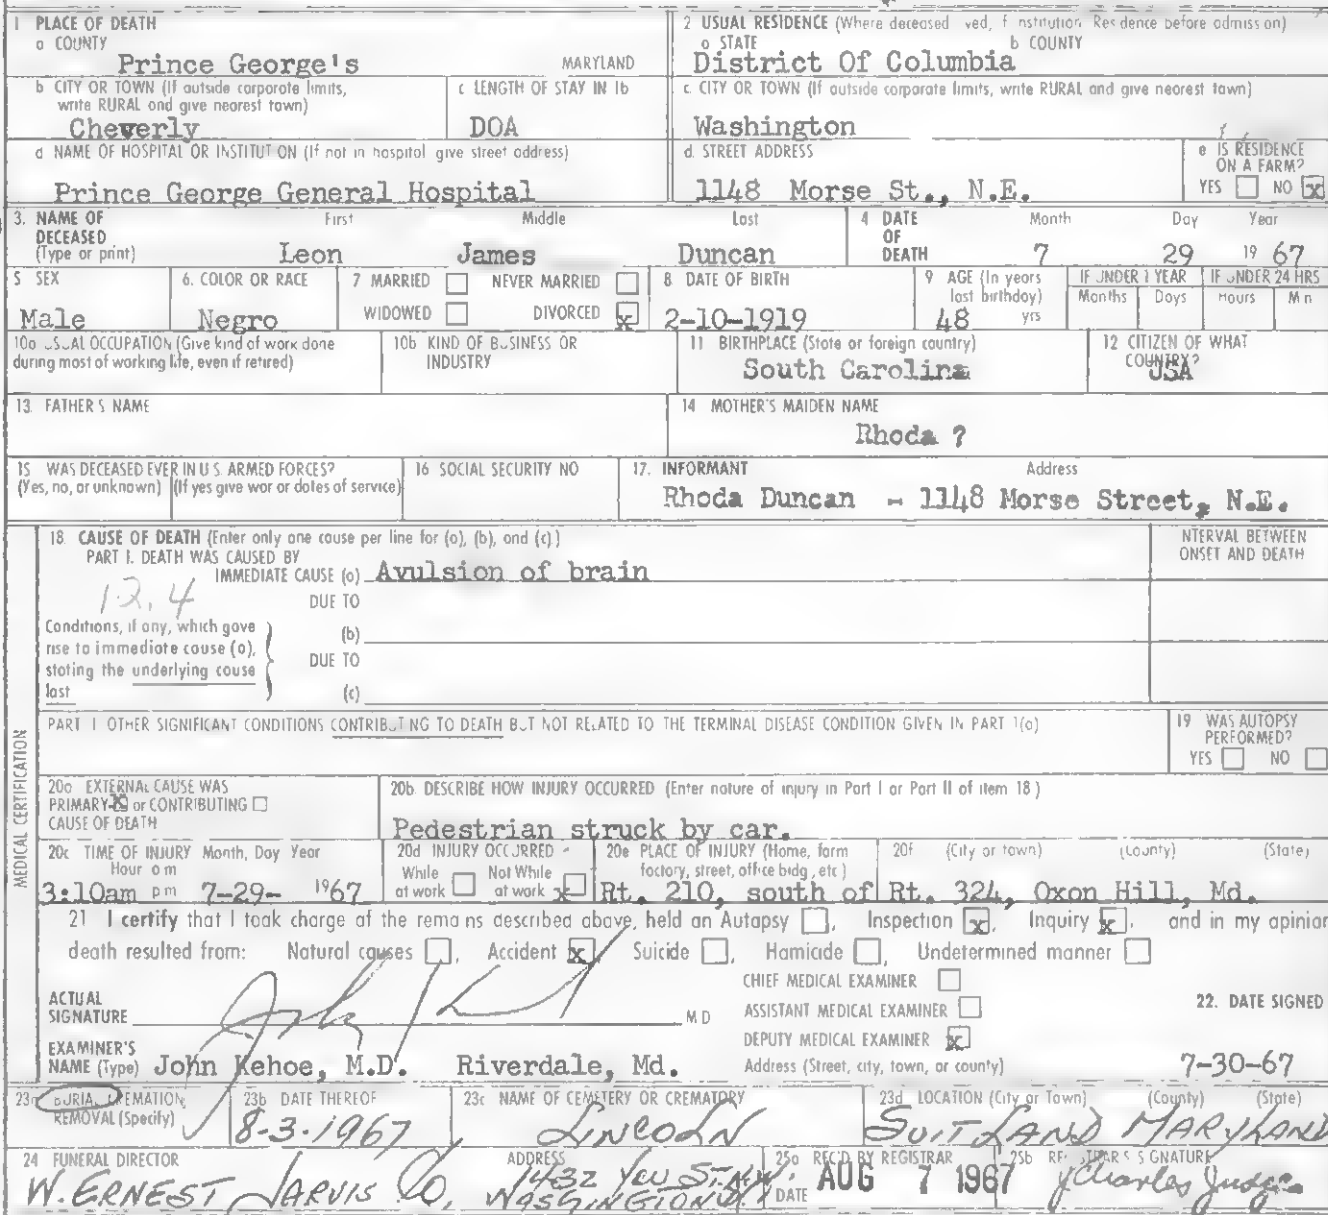 1 PLACE OF DEATH
a COUNTY
Prince George's MARYLAND
2 USUAL RESIDENCE (Where deceased ved, f nstitution Residence before admission)
a STATE b COUNTY
District Of Columbia
b CITY OR TOWN (If outside corporate limits, write RURAL and give nearest town)
Cheverly
c LENGTH OF STAY IN 1b
DOA
c. CITY OR TOWN (If outside corporate limits, write RURAL and give nearest town)
Washington
d NAME OF HOSPITAL OR INSTITUT ON (If not in hospital give street address)
Prince George General Hospital
d. STREET ADDRESS
1148 Morse St., N.E.
e IS RESIDENCE ON A FARM?
YES NO x
3. NAME OF DECEASED (Type or print)
First Middle Last
Leon James Duncan
4 DATE OF DEATH
Month Day Year
7 29 19 67
5 SEX
Male
6. COLOR OR RACE
Negro
7 MARRIED NEVER MARRIED
WIDOWED DIVORCED x
8 DATE OF BIRTH
2-10-1919
9 AGE (In years last birthday)
48 yrs
IF UNDER 1 YEAR
Months Days
IF UNDER 24 HRS
Hours M n
10a USUAL OCCUPATION (Give kind of work done during most of working life, even if retired)
10b KIND OF BUSINESS OR INDUSTRY
11 BIRTHPLACE (State or foreign country)
South Carolina
12 CITIZEN OF WHAT COUNTRY?
USA
13. FATHER S NAME
14 MOTHER'S MAIDEN NAME
Rhoda ?
15 WAS DECEASED EVER IN U S ARMED FORCES?
(Yes, no, or unknown) (If yes give war or dates of service)
16 SOCIAL SECURITY NO
17. INFORMANT Address
Rhoda Duncan - 1148 Morse Street, N.E.
MEDICAL CERTIFICATION
18. CAUSE OF DEATH (Enter only one cause per line for (a), (b), and (c))
PART I. DEATH WAS CAUSED BY
IMMEDIATE CAUSE (a) Avulsion of brain
NTERVAL BETWEEN ONSET AND DEATH
12.4
DUE TO
Conditions, if any, which gave rise to immediate cause (a), stating the underlying cause last
(b)
DUE TO
(c)
PART I OTHER SIGNIFICANT CONDITIONS CONTRIBUTING TO DEATH BUT NOT RELATED TO THE TERMINAL DISEASE CONDITION GIVEN IN PART 1(a)
19 WAS AUTOPSY PERFORMED?
YES NO
20a EXTERNAL CAUSE WAS
PRIMARY x or CONTRIBUTING
CAUSE OF DEATH
20b. DESCRIBE HOW INJURY OCCURRED (Enter nature of injury in Part I or Part II of item 18)
Pedestrian struck by car.
20c TIME OF INJURY Month, Day Year
Hour a m
3:10am p m 7-29- 1967
20d INJURY OCCURRED
While at work Not While at work x
20e PLACE OF INJURY (Home, farm factory, street, office bldg, etc)
20f (City or town) (County) (State)
Rt. 210, south of Rt. 324, Oxon Hill, Md.
21 I certify that I took charge of the rema ns described above, held an Autopsy , Inspection x, Inquiry x, and in my opinion
death resulted from: Natural causes , Accident x, Suicide , Homicide , Undetermined manner
CHIEF MEDICAL EXAMINER
ACTUAL SIGNATURE M D
ASSISTANT MEDICAL EXAMINER
22. DATE SIGNED
DEPUTY MEDICAL EXAMINER x
EXAMINER'S NAME (Type) John Kehoe, M.D. Riverdale, Md.
Address (Street, city, town, or county)
7-30-67
23a BURIAL, CREMATION, REMOVAL (Specify)
23b DATE THEREOF
8-3-1967
23c NAME OF CEMETERY OR CREMATORY
LINCOLN
23d LOCATION (City or Town) (County) (State)
SUITLAND MARYLAND
24 FUNERAL DIRECTOR ADDRESS
W. ERNEST JARVIS CO, 1432 YOU ST. N.W. WASHINGTON
25a REC'D BY REGISTRAR
DATE AUG 7 1967
25b REGISTRAR S SIGNATURE
J Charles Judge